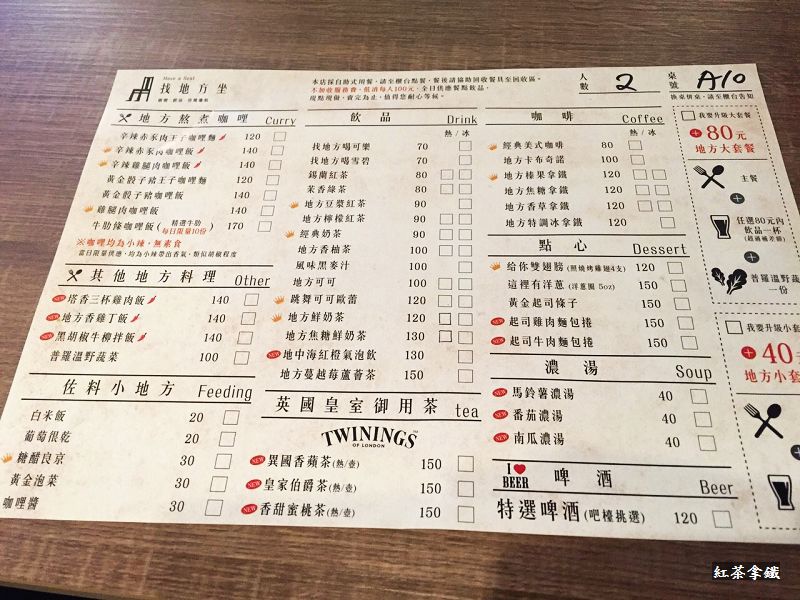 Have a Seat
找地方坐
本店採自助式用餐，請至櫃台點餐，餐後請協助回收餐具至回收區。
不加收服務費，低消每人100元，全日供應餐點飲品，
現點現做，賣完為止，值得您耐心等候。
人數 2
桌號 A10
換桌併桌，請至櫃台告知
地方熬煮咖哩 Curry
辛辣赤豕肉王子咖哩麵 120
辛辣赤豕肉咖哩飯 140
辛辣雞腿肉咖哩飯 140
黃金骰子豬王子咖哩麵 120
黃金骰子豬咖哩飯 140
雞腿肉咖哩飯 140
牛肋條咖哩飯(精選牛肋 每日限量10份) 170
※咖哩均為小辣，無素食
當日限量供應，均為小辣帶出香氣，類似胡椒程度
其他地方料理 Other
NEW 塔香三杯雞肉飯 140
NEW 地方香雞丁飯 140
NEW 黑胡椒牛柳拌飯 140
普羅溫野蔬菜 100
佐料小地方 Feeding
白米飯 20
葡萄很乾 20
糖醋良京 30
黃金泡菜 30
咖哩醬 30
飲品 Drink
熱/冰
找地方喝可樂 70
找地方喝雪碧 70
錫蘭紅茶 80
茉香綠茶 80
地方豆漿紅茶 90
地方檸檬紅茶 90
經典奶茶 90
地方香柚茶 100
風味黑麥汁 100
地方可可 100
跳舞可可歐蕾 120
地方鮮奶茶 120
地方焦糖鮮奶茶 130
NEW 地中海紅橙氣泡飲 130
地方蔓越莓蘆薈茶 150
英國皇室御用茶 tea
TWININGS
OF LONDON
NEW 異國香蘋茶(熱/壺) 150
NEW 皇家伯爵茶(熱/壺) 150
NEW 香甜蜜桃茶(熱/壺) 150
咖啡 Coffee
熱/冰
經典美式咖啡 80
地方卡布奇諾 100
地方榛果拿鐵 120
地方焦糖拿鐵 120
地方香草拿鐵 120
地方特調冰拿鐵 120
點心 Dessert
給你雙翅膀(照燒烤雞翅4支) 120
這裡有洋蔥(洋蔥圈 5oz) 150
黃金起司條子 150
NEW 起司雞肉麵包捲 150
NEW 起司牛肉麵包捲 150
濃湯 Soup
NEW 馬鈴薯濃湯 40
NEW 番茄濃湯 40
NEW 南瓜濃湯 40
I ❤ BEER
啤酒 Beer
特選啤酒(吧檯挑選) 120
我要升級大套餐
+80元
地方大套餐
主餐
任選80元內
飲品一杯
(超過補差額)
普羅溫野蔬菜
一份
我要升級小套
+40
地方小套
紅茶拿鐵